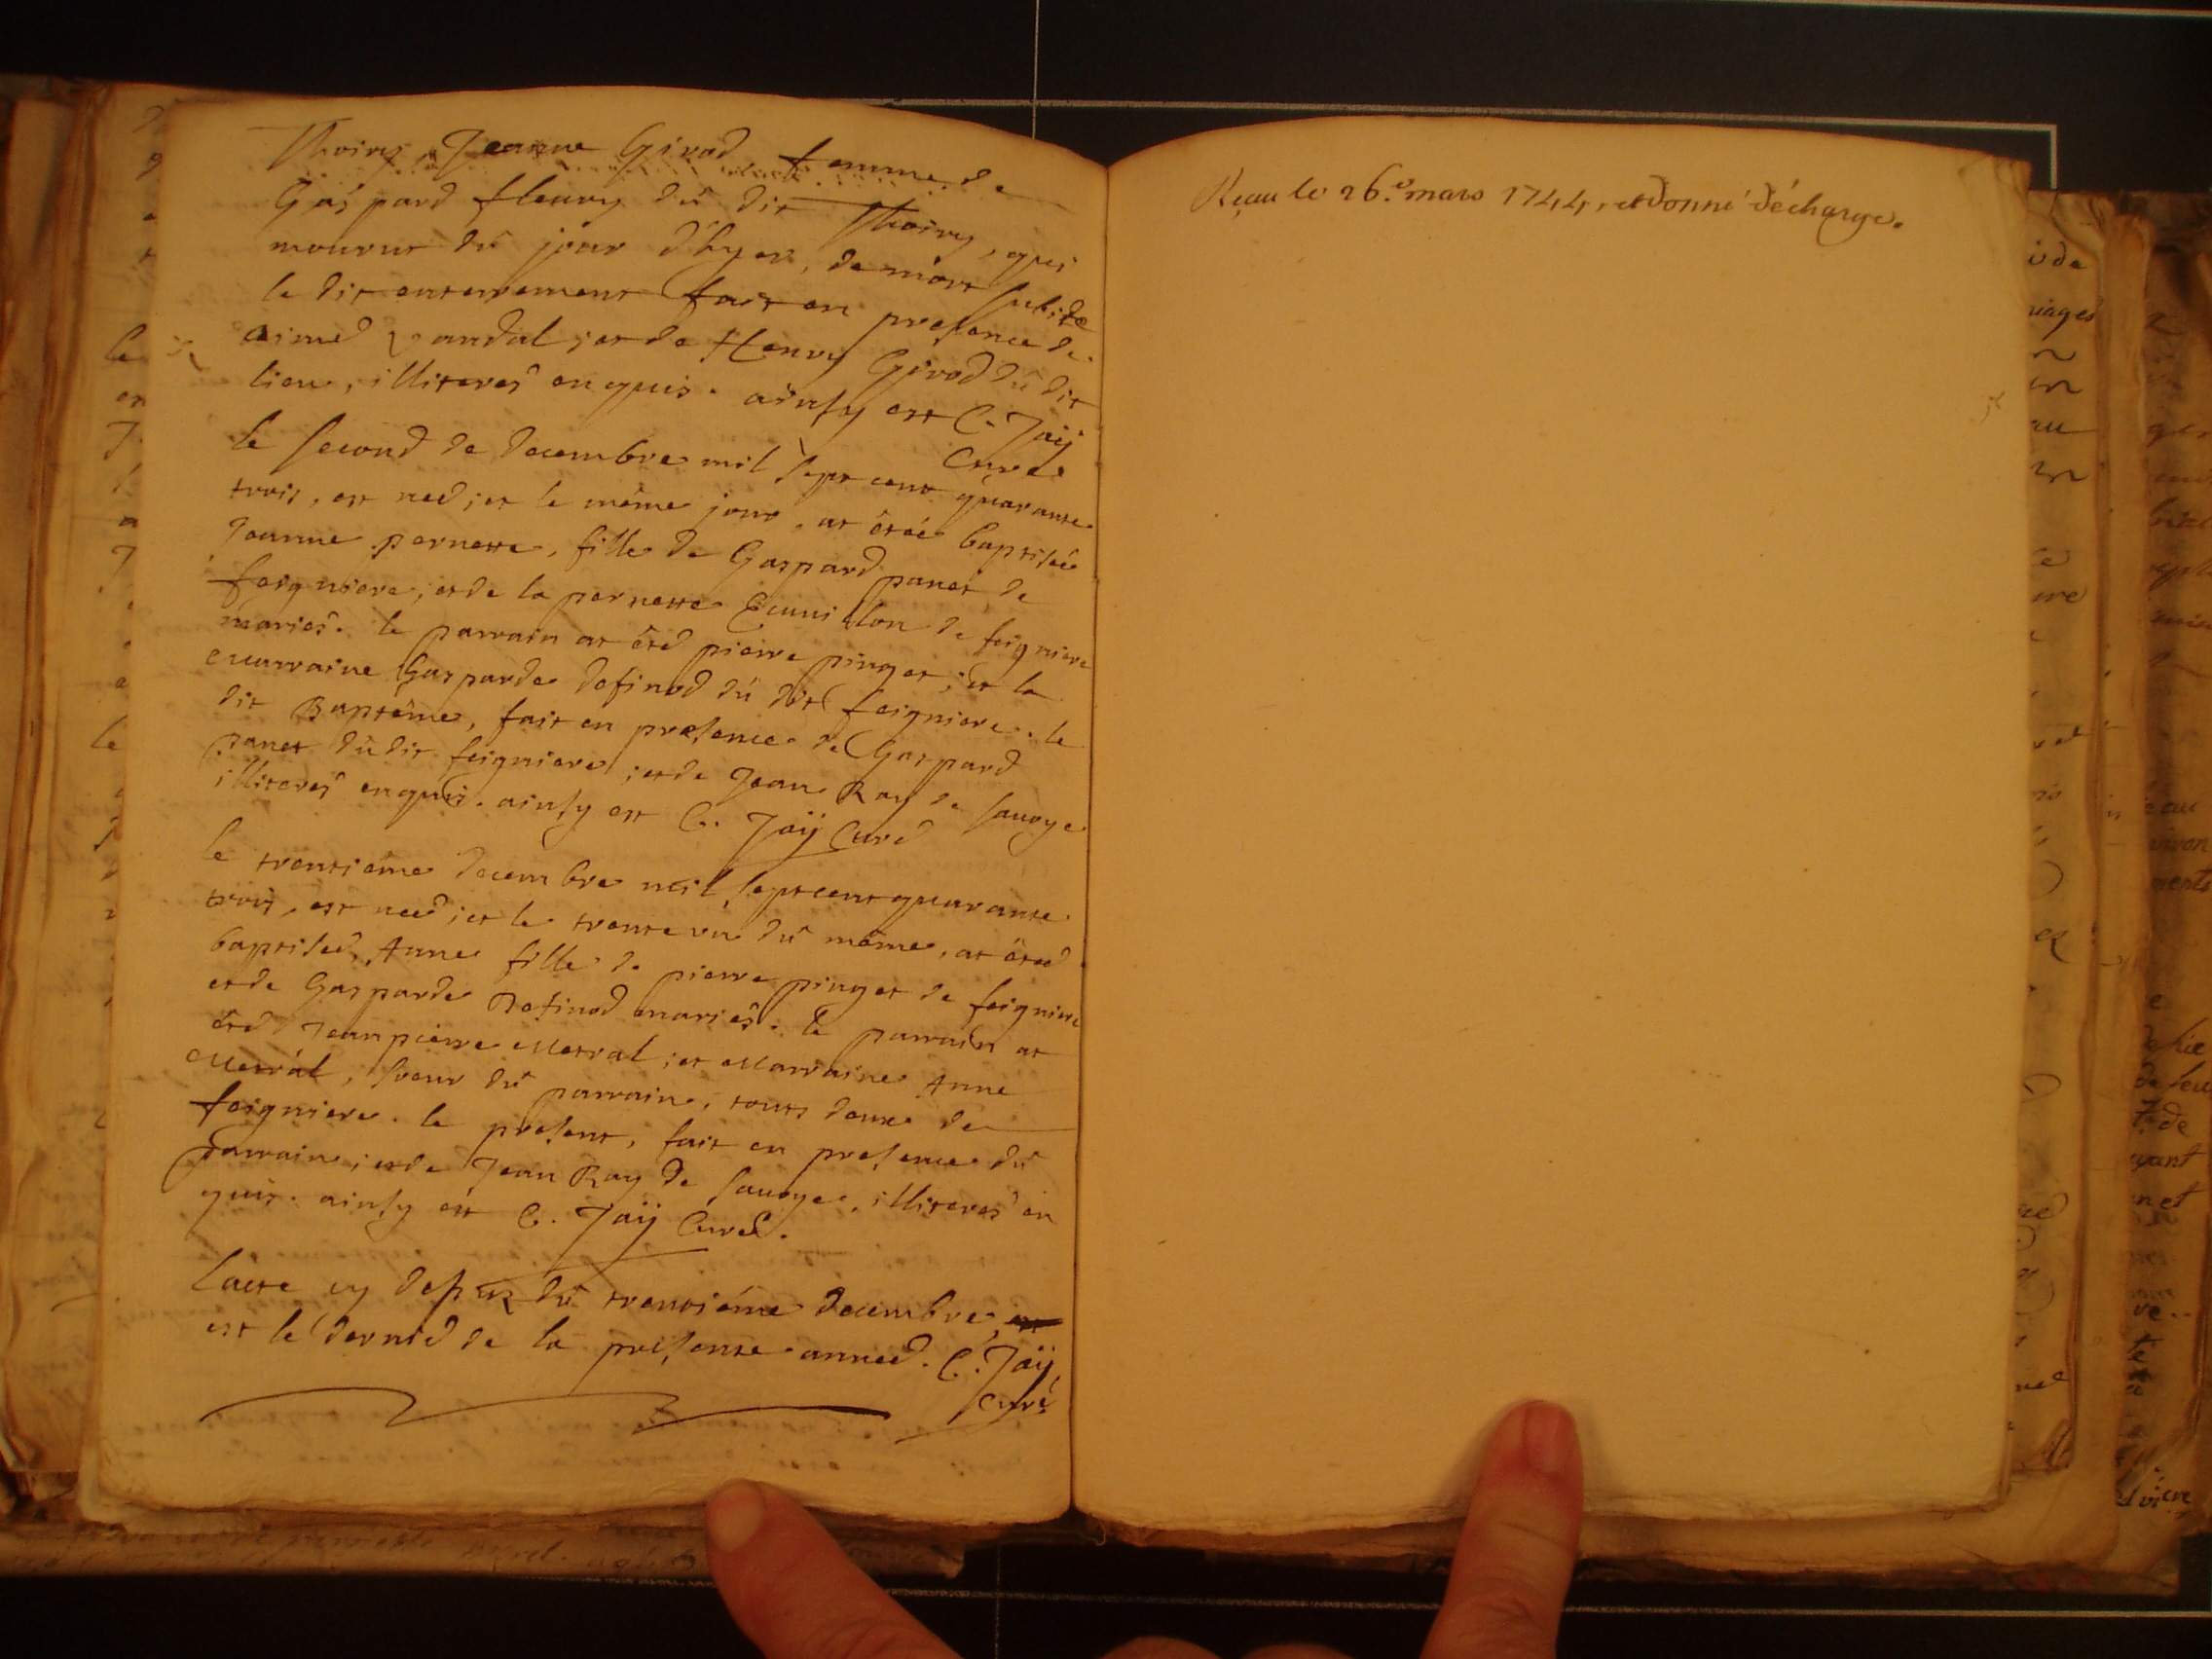 Thoiry, Jeanne Girod femme de
Gaspard fleury dû dit Thoiry, qui
mourut dû jour d'hyer, de mort subite
le dit enterrement fait en presence de
aimé vandal; et de fleury Girod dû dit
lieu, illiterés enquis. ainsy est C. Jaÿ
Curé
le second de decembre mil sept cent quarante
trois, est neé; et le même jour, at êtée baptisée
Jeanne pernette, fille de Gaspard panet de
feigniere; et de la pernette Ecuuillon de feigniere
mariés. le parrain at êté pierre pinget; et la
marraine Gasparde Definod dû dit feigniere. le
dit Baptême, fait en presence de Gaspard
panet dû dit feigniere; et de Jean Ray de sauoye
illiterés enquis. ainsy est C. Jaÿ Curé
le trentiéme decembre mil sept cent quarante
trois, est neé; et le trente un dû même, at êteé
baptiseé, Anne fille de pierre pinget de feigniere
et de Gasparde Definod mariés. le parrain at
êté Jeanpierre Metral; et Marraine Anne
Metral, soeur dû parrain, touts deux de
feigniere. le present, fait en presence dû
parrain; et de Jean Ray de sauoye, illiterés en
quis. ainsy est C. Jaÿ Curé.
lacte cy dessus dû trentiéme decembre,
est le dernié de la presente anneé. C. Jaÿ
Curé
Reçu le 26.e mars 1744, et donné décharge.